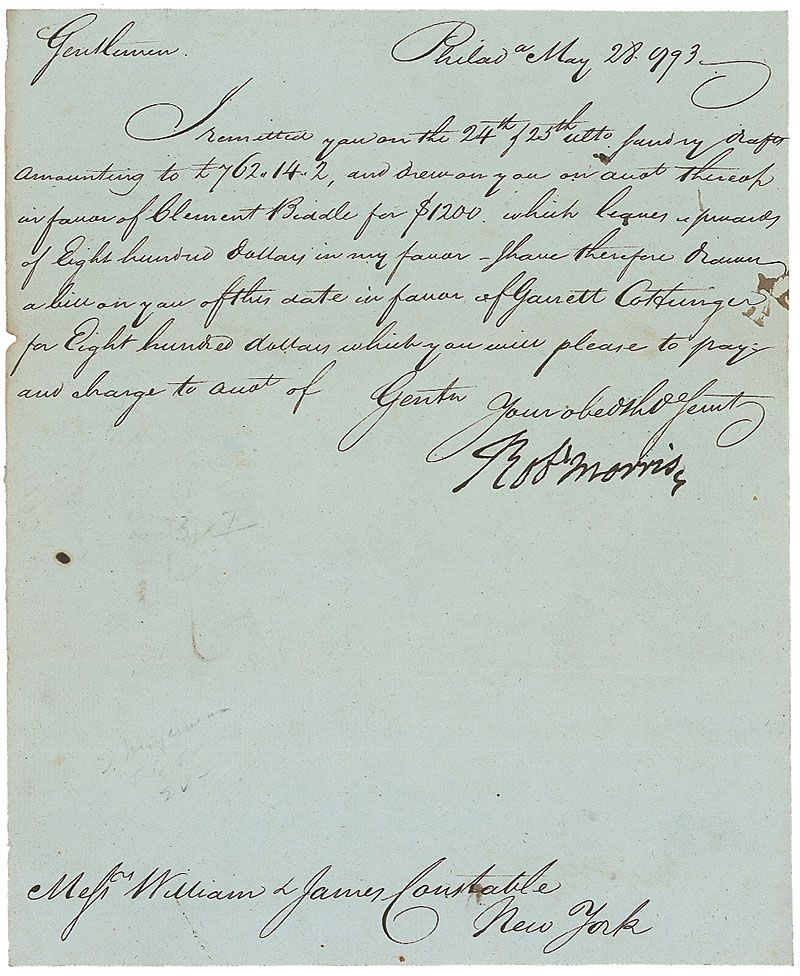 Gentlemen.
Philada May 28. 1793
I remitted you on the 24th & 25th ulto. sundry drafts
amounting to £762.14.2, and drew on you on accot thereof
in favor of Clement Biddle for $1200 which leaves upwards
of Eight hundred Dollars in my favor - I have therefore drawn
a bill on you of this date in favor of Garrett Cottringer
for Eight hundred dollars which you will please to pay
and charge to accot of
Gentn
Your obed hb Servt
Robt Morris
Messrs William & James Constable
New York